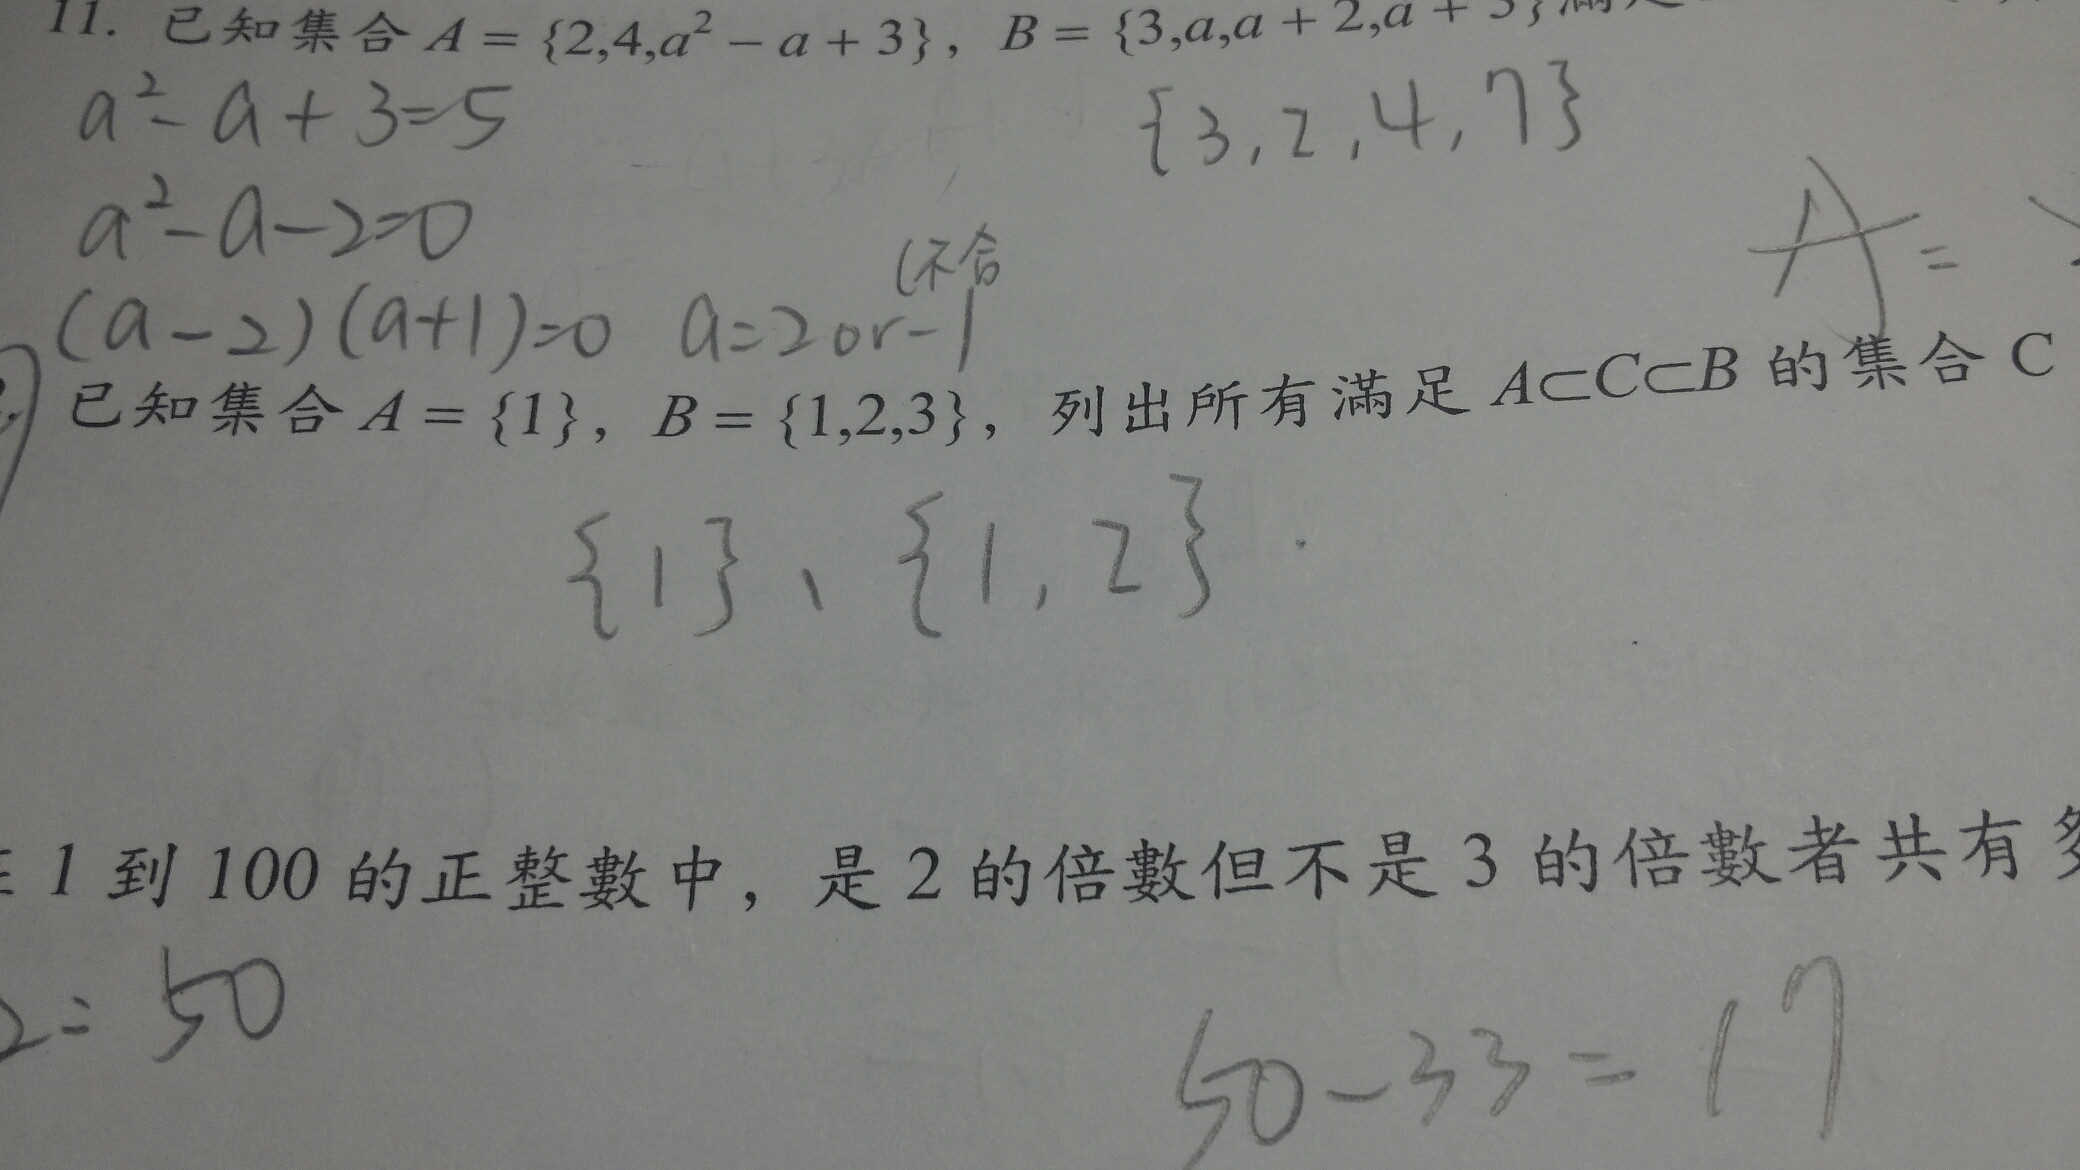 11. 已知集合 A = {2,4,a² − a + 3}, B = {3,a,a + 2,a +
a² - a + 3 = 5
{3, 2, 4, 7}
a² - a - 2 = 0
A =
(不合
(a - 2) (a + 1) = 0 a = 2 or -1
已知集合 A = {1}, B = {1,2,3}, 列出所有滿足 A⊂C⊂B 的集合 C
{1}、{1, 2}
1 到 100 的正整數中, 是 2 的倍數但不是 3 的倍數者共有
2 = 50
50 - 33 = 17